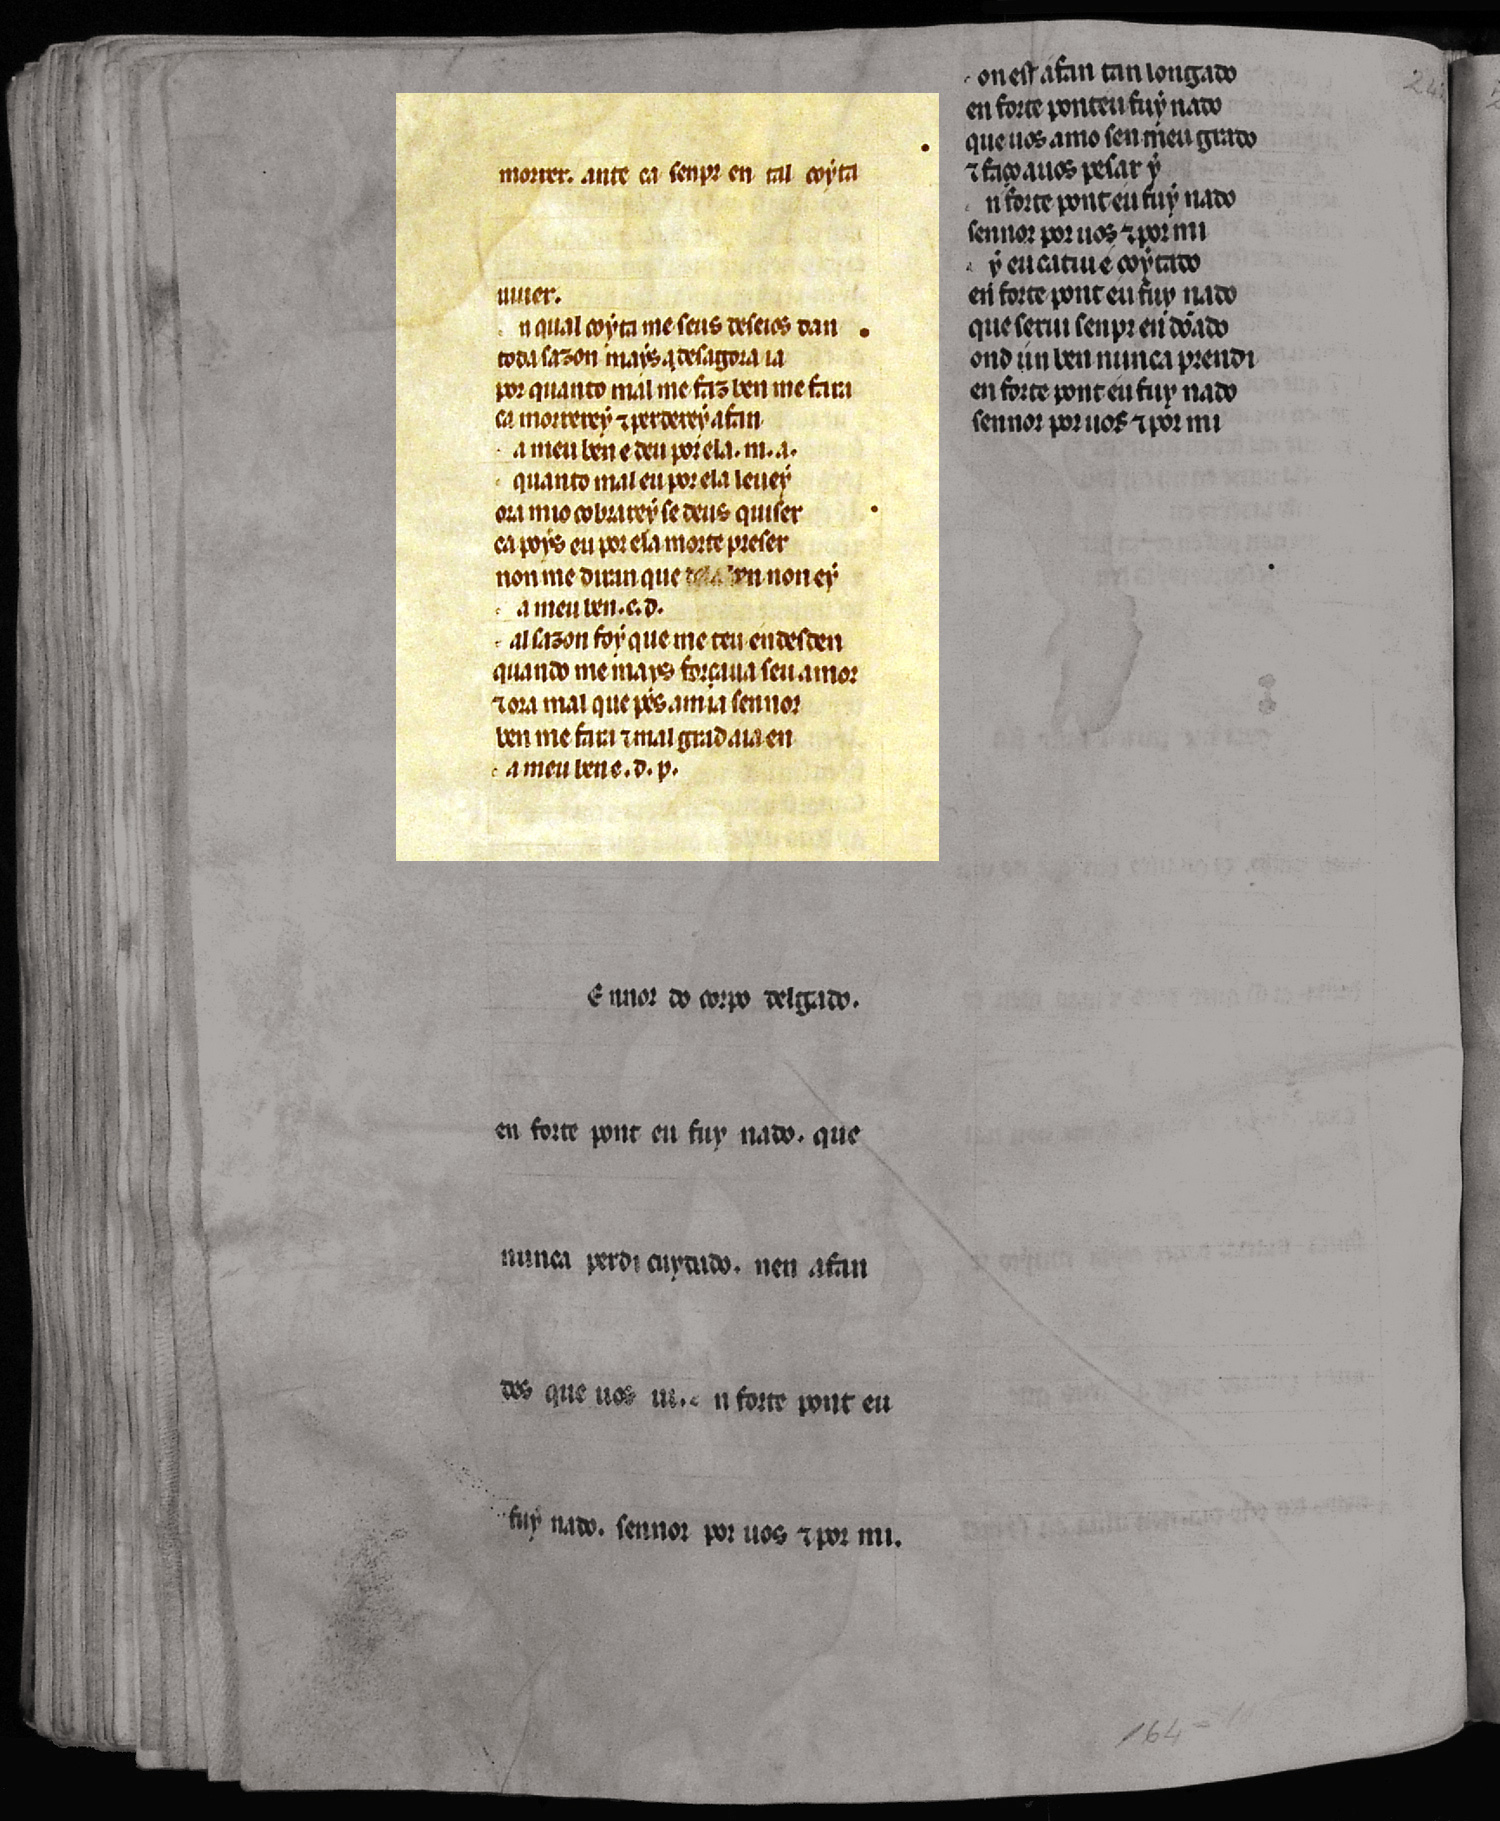 morrer. ante ca senpr en tal coyta
uiuer.
n qual coyta me seus deseios dan
toda sazon mays q̇ desagora ia
por quanto mal me faz ben me fara
ca morrerey ⁊ perderey afan
a meu ben e deu por ela. m. a.
quanto mal eu por ela leuey
ora mio cobrarey se deus quiser
ca poys eu por ela morte preser
non me diran que dela ben non ey
a meu ben. e. d.
al sazon foy que me teu en desden
quando me mays forçaua seu amor
⁊ ora mal que pes a mia sennor
ben me fara ⁊ mal grad aia en
a meu ben e. d. p.
Ennor do corpo delgado.
en forte pont eu fuy nado. que
nunca perdi cuydado. nen afan
des que uos ui. n forte pont eu
fuy nado. sennor por uos ⁊ por mi.
on est afan tan longado
en forte ponteu fuy nado
que uos amo sen meu grado
⁊ faço auos pesar y
n forte pont eu fuy nado
sennor por uos ⁊ por mi
y eu catiu e coytado
en forte pont eu fuy nado
que serui senpr en dõado
ond un ben nunca prendi
en forte pont eu fuy nado
sennor por uos ⁊ por mi
164